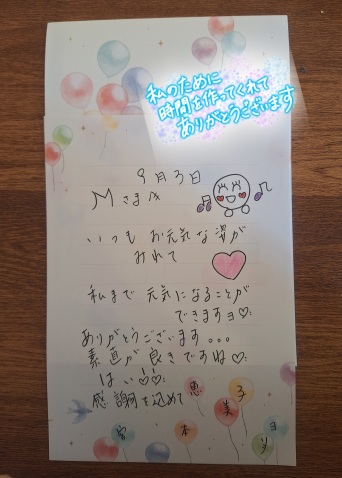 私のために
時間を作ってくれて
ありがとうございます
9月3日
Mさま
いつも お元気な姿が
みれて
私まで 元気になることが
できますヨ♡
ありがとうございます。。。
素直が良きですね♡
はい♡♡
感謝を込めて
恵美子
宮本